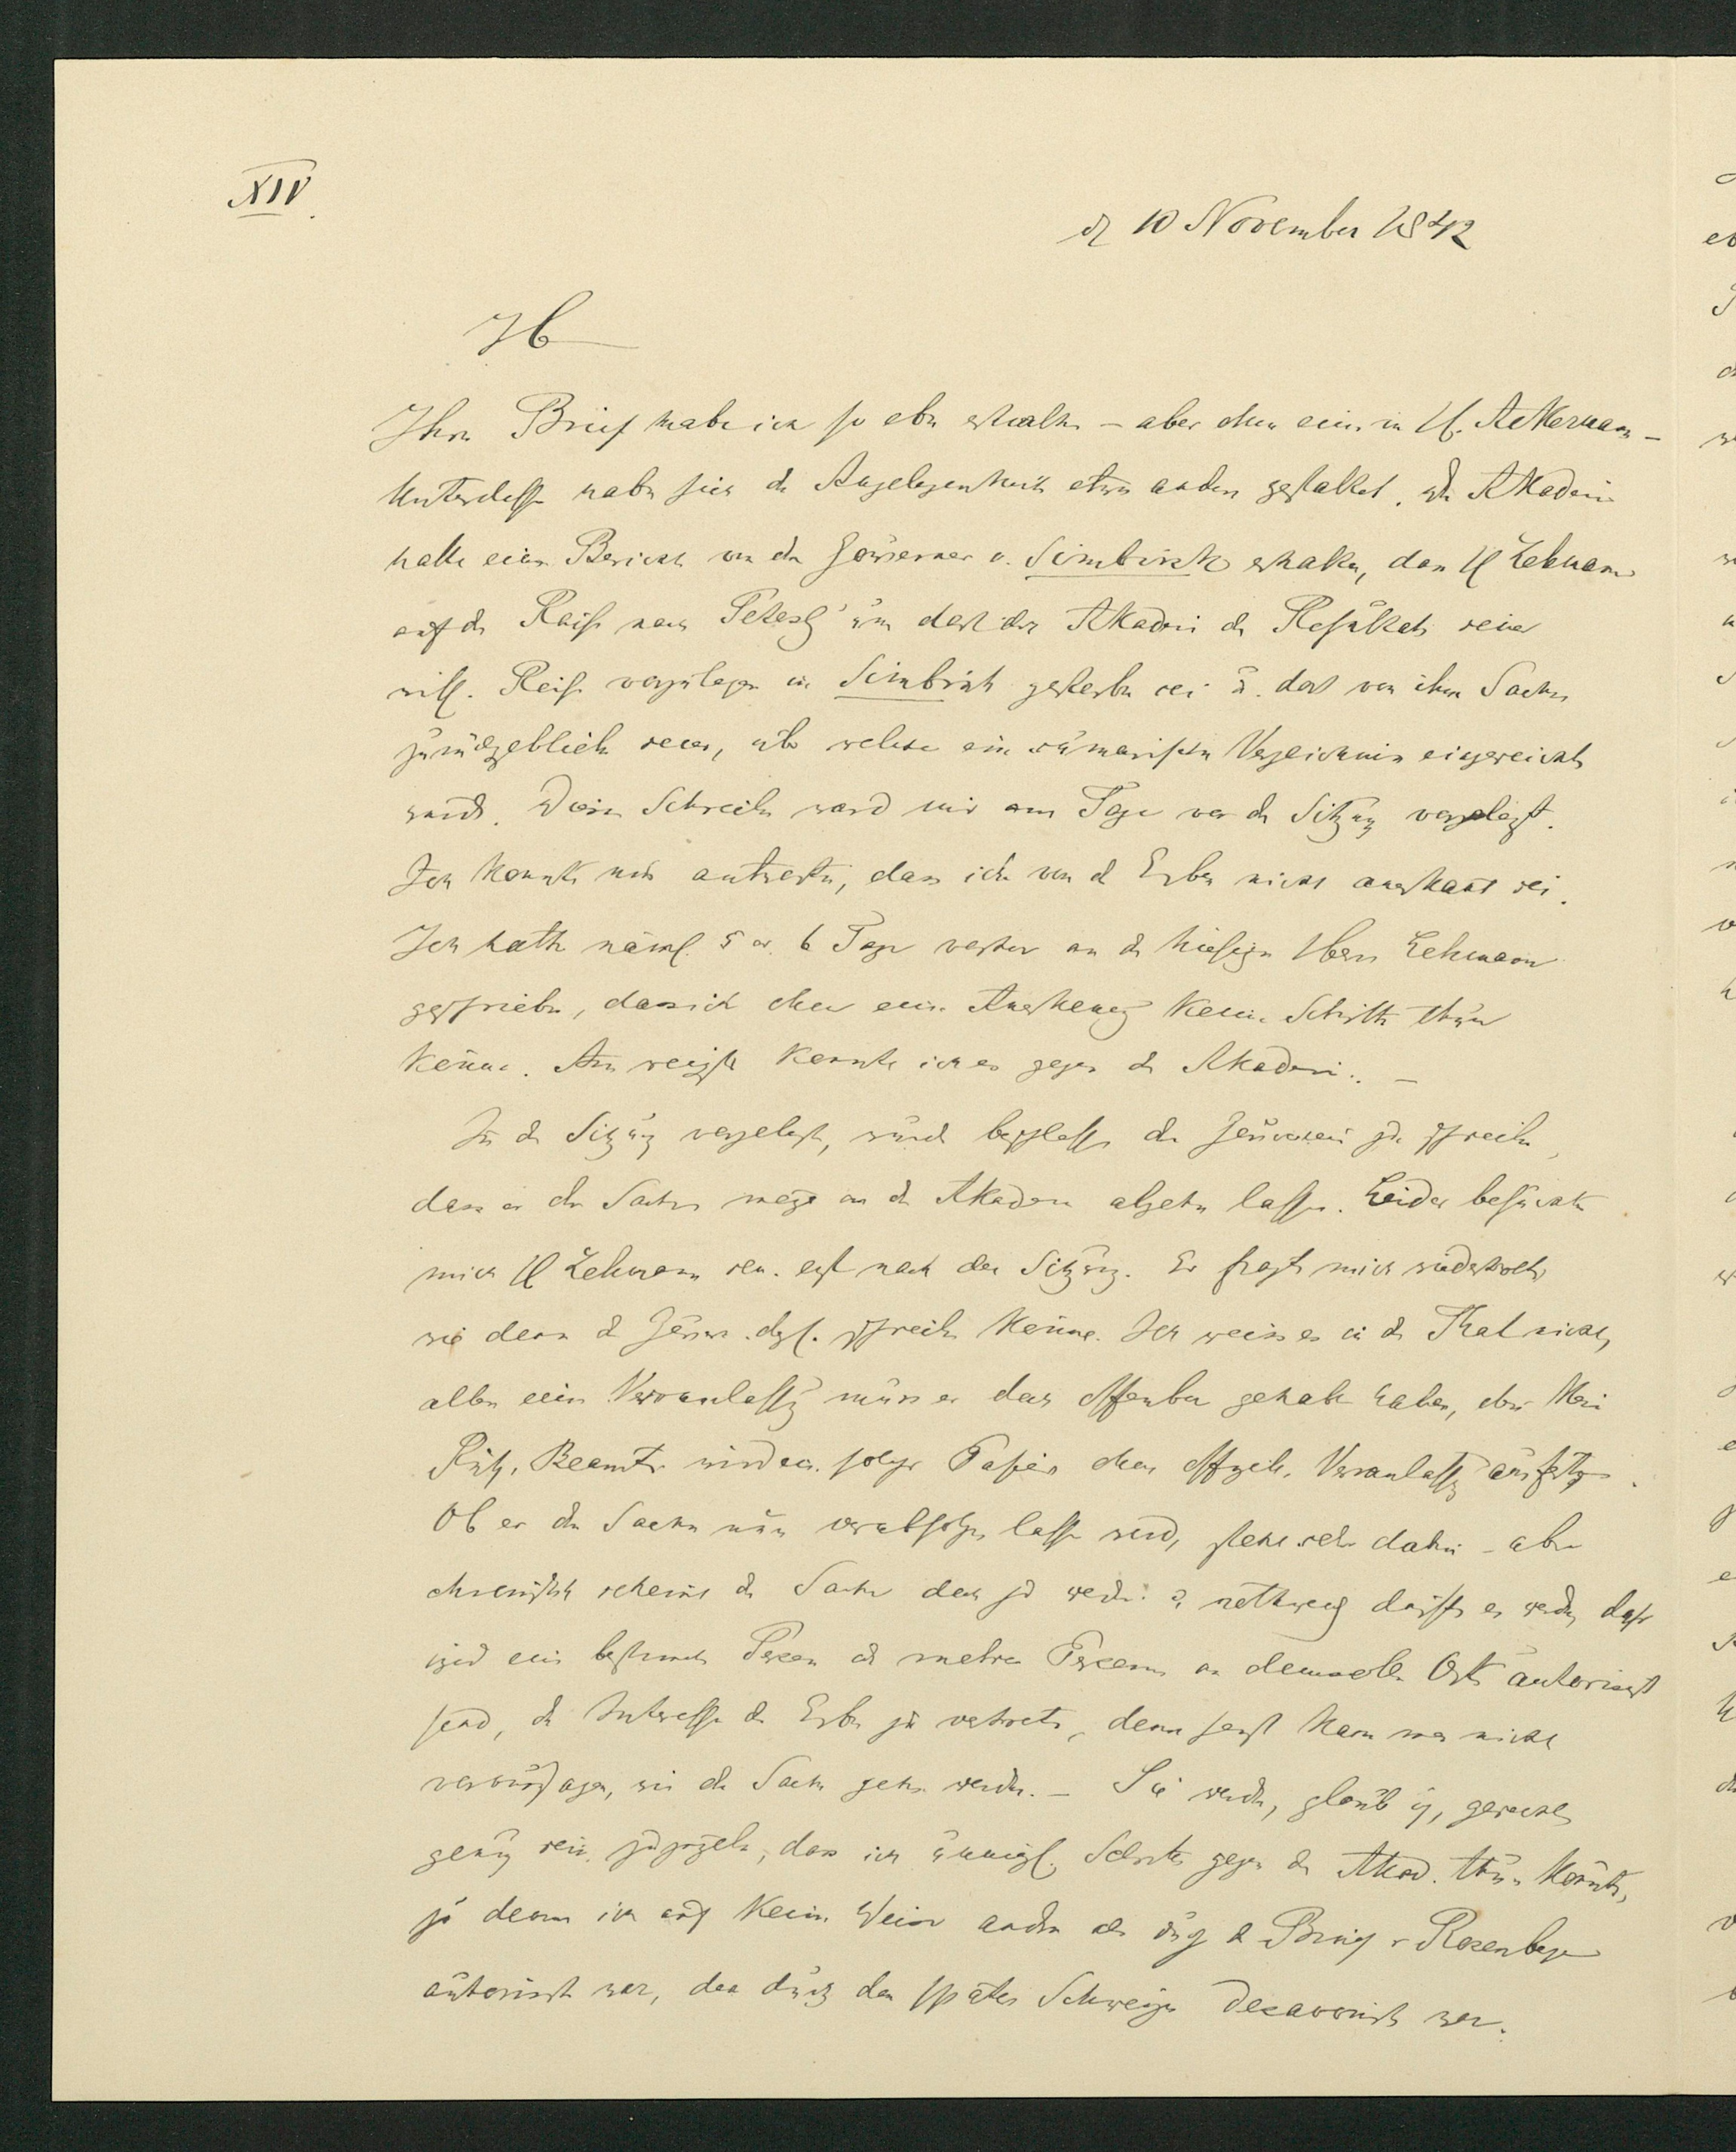 XIV.
d 10 November 1842
H
Ihren Brief habe ich so eben erhalten – aber ohne einen an H. Ackermann –
Unterdessen haben sich die Angelegenheiten etwas anders gestaltet. Die Akademie
hatte einen Bericht von dem Gouverneur v. Simbirsk erhalten, dass H Lehmann
auf der Reise nach Petersb um dort der Akademie die Resultate seiner
wiss. Reise vorzulegen in Simbirsk gestorben sei u. dass von ihm Sachen
zurückgeblieben seien, über welche ein summarisches Verzeichniss eingereicht
wurde. Dies Schreiben ward mir am Tage vor der Sitzung vorgelegt.
Ich konnte nur antworten, dass ich von d Erben nicht anerkannt sei.
Ich hatte nämlich 5 od. 6 Tage vorher an den hiesigen Herrn Lehmann
geschrieben, dass ich ohne eine Anerkennung keine Schritte thun
könne. Am wenigsten konnte ich es gegen die Akademie. –
In der Sitzung vorgelegt, wurde beschlossen dem Gouverneur zu schreiben,
dass er die Sachen möge an die Akademie abgehen lassen. Leider besuchte
mich H Lehmann sen. erst nach der Sitzung. Er fragte mich wiederholt,
wie denn d Gouvern. dgl. schreiben könne. Ich weiss es in der That nicht,
allein eine Veranlassung muss er doch offenbar gehabt haben, denn kein
Russ. Beamter wird ein solches Papier ohne officielle Veranlassung ausfertigen.
Ob er die Sachen nun verabfolgen lassen wird, steht sehr dahin – aber
chronisch scheint die Sache doch zu werden u. nothwendig dürfte es werden dass
irgend eine bestimmte Person od mehre Personen an demselben Orte autorisirt
sind, das Interesse der Erben zu vertreten, denn sonst kann man nicht
voraussagen, wie die Sachen gehen werden. – Sie werden, glaub ich, gerecht
genug sein zuzugeben, dass ich unmögl. Schritte gegen die Akad. thun konnte,
zu denen ich auf keine Weise anders als durch d Brief v Rosenberger
autorisirt war, der durch das spätere Schweigen desavouirt war.